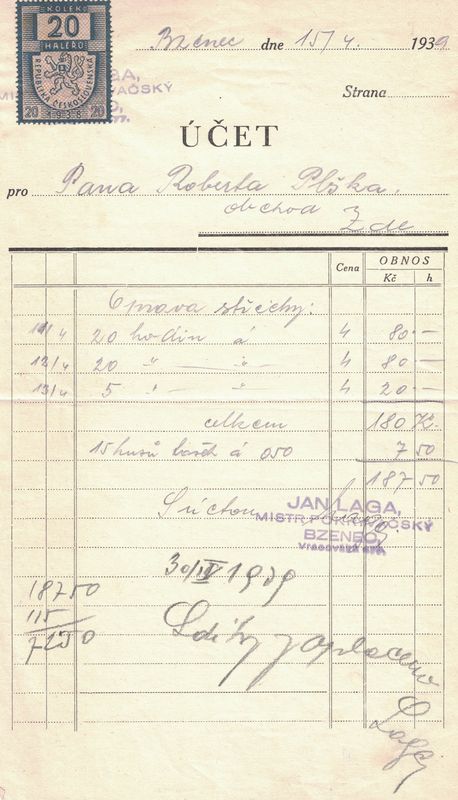 KOLEK
20
HALÉŘŮ
REPUBLIKA ČESKOSLOVENSKÁ
20 1938 20
Bzenec dne 15/4. 1939
Strana
ÚČET
pro Pana Roberta Plška.
obchod Zde
Cena OBNOS
Kč h
Oprava střechy:
11/4 20 hodin á 4 80 —
12/4 20 " — " 4 80 —
13/4 5 " — " 4 20 —
celkem 180 K.
15 kusů á 050 7 50
187 50
S úctou
JAN LAGA,
MISTR POKRÝVAČSKÝ
BZENEC,
Vracovská
30/IV 1939
187 50
115
72 50
Sdíky zaplaceno
Laga